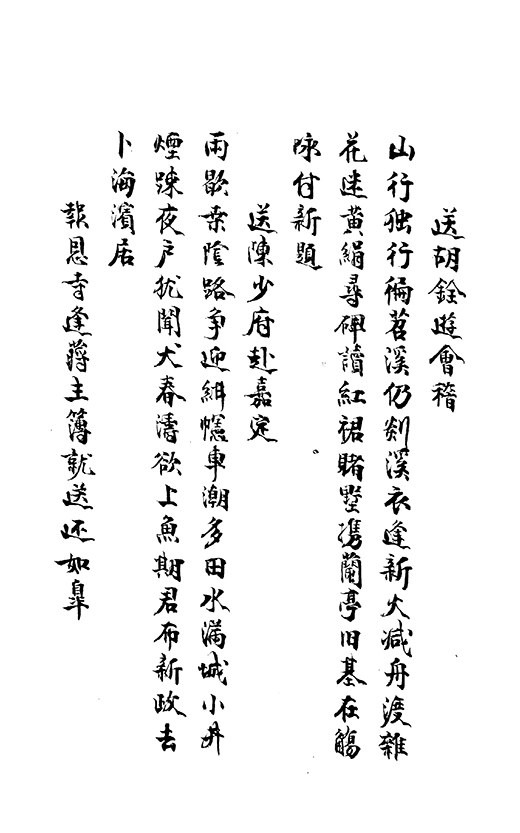 送胡銓遊會稽
山行独行徧苕溪仍剡溪衣逢新火減舟渡雜
花迷黄絹尋碑讀紅裙賭墅携蘭亭旧基在觴
咏付新題
送陳少府赴嘉定
雨歇桑陰路争迎緋幰車潮多田水滿城小井
煙踈夜户犹聞犬春濤欲上魚期君布新政去
卜海濱居
報恩寺逢蒋主簿就送还如皐